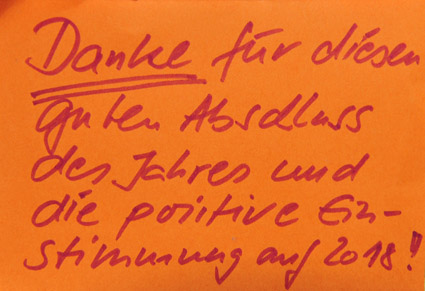 Danke für diesen
guten Abschluss
des Jahres und
die positive Ein-
stimmung auf 2018!